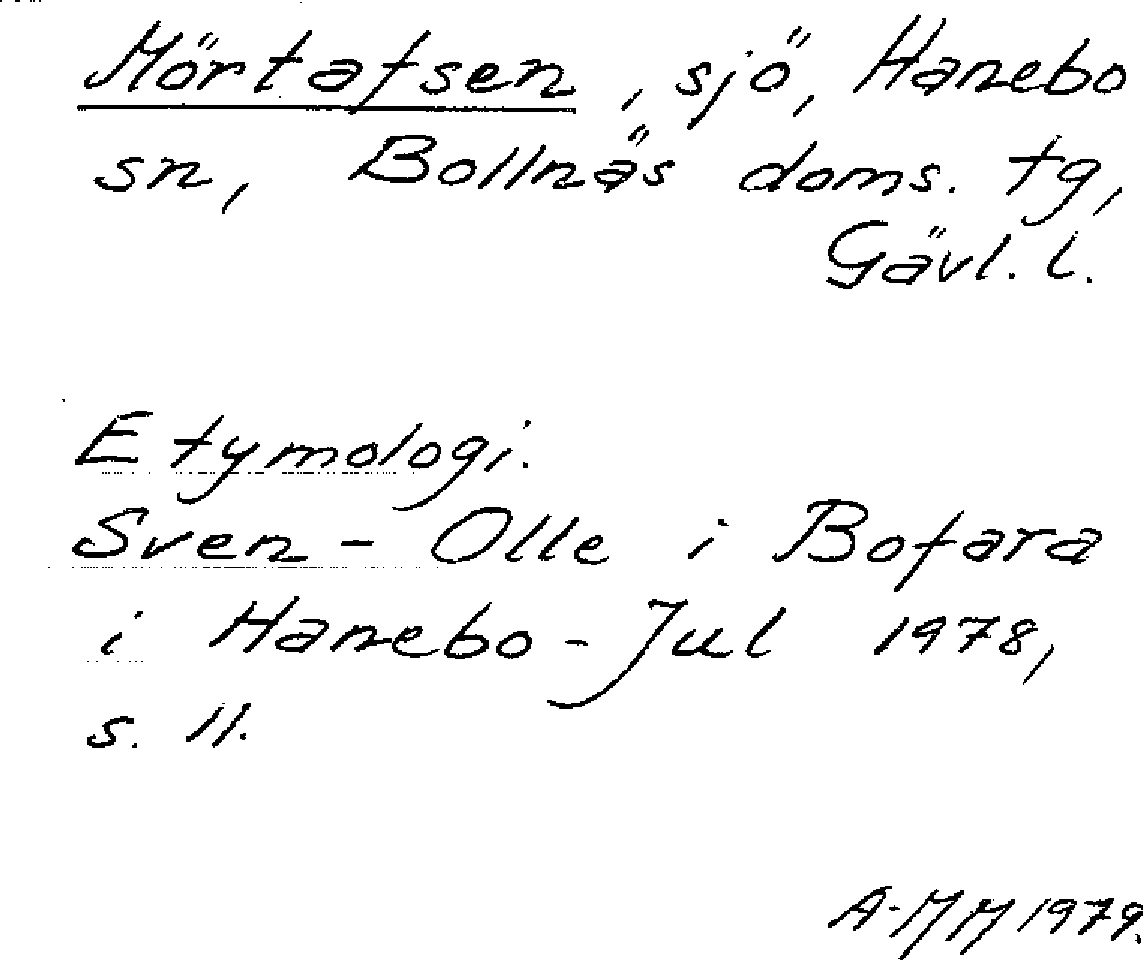 Mörtafsen, sjö, Hanebo
sn, Bollnäs doms. tg,
Gävl. l.
Etymologi.
Sven-Olle i Bofara
i Hanebo-Jul 1978,
s. 11.
A-MM 1979.